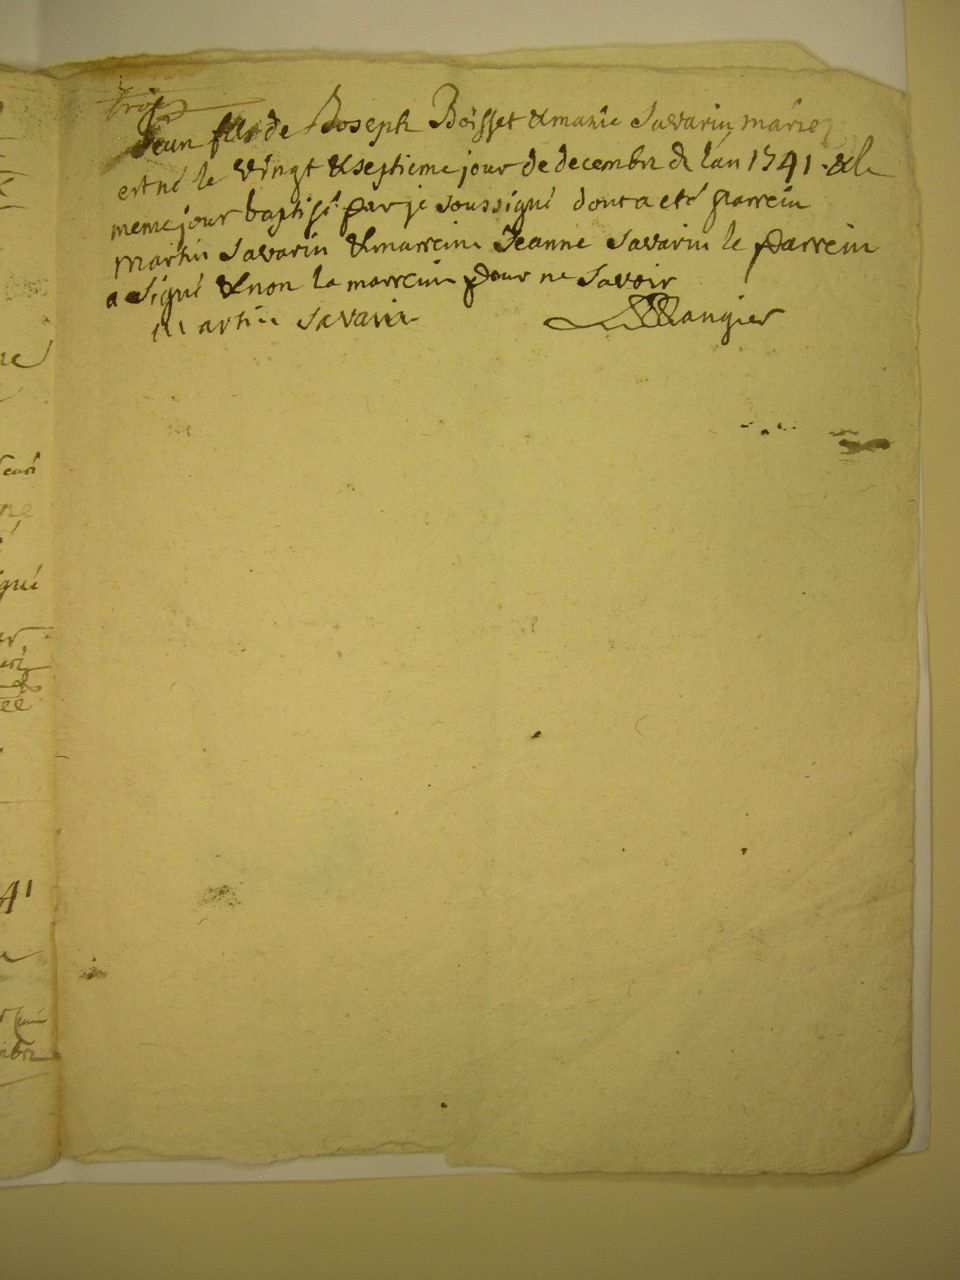 trois
Jean fils de Joseph Boisset & marie Savarin mariez
est né le vingt & septieme jour de decembre de lan 1741 & le
meme jour baptisé par je soussigné dont a eté parrein
martin Savarin & marreine Jeanne Savarin le parrein
a signé & non la marreine pour ne Savoir
Martin Savarin Mangier
né
signé
41